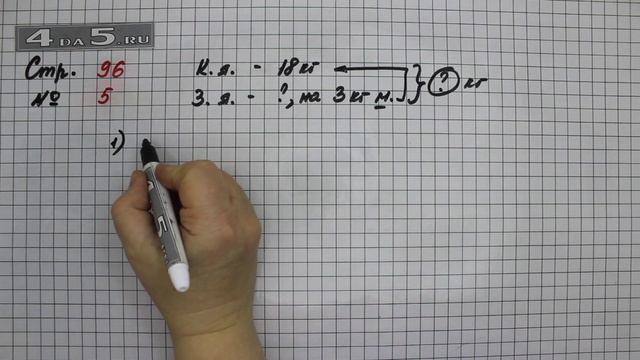 4DA5.RU
Стр. 96 К.я. - 18 кг
№ 5 З.я. - ?, на 3 кг м. ? кг
1)